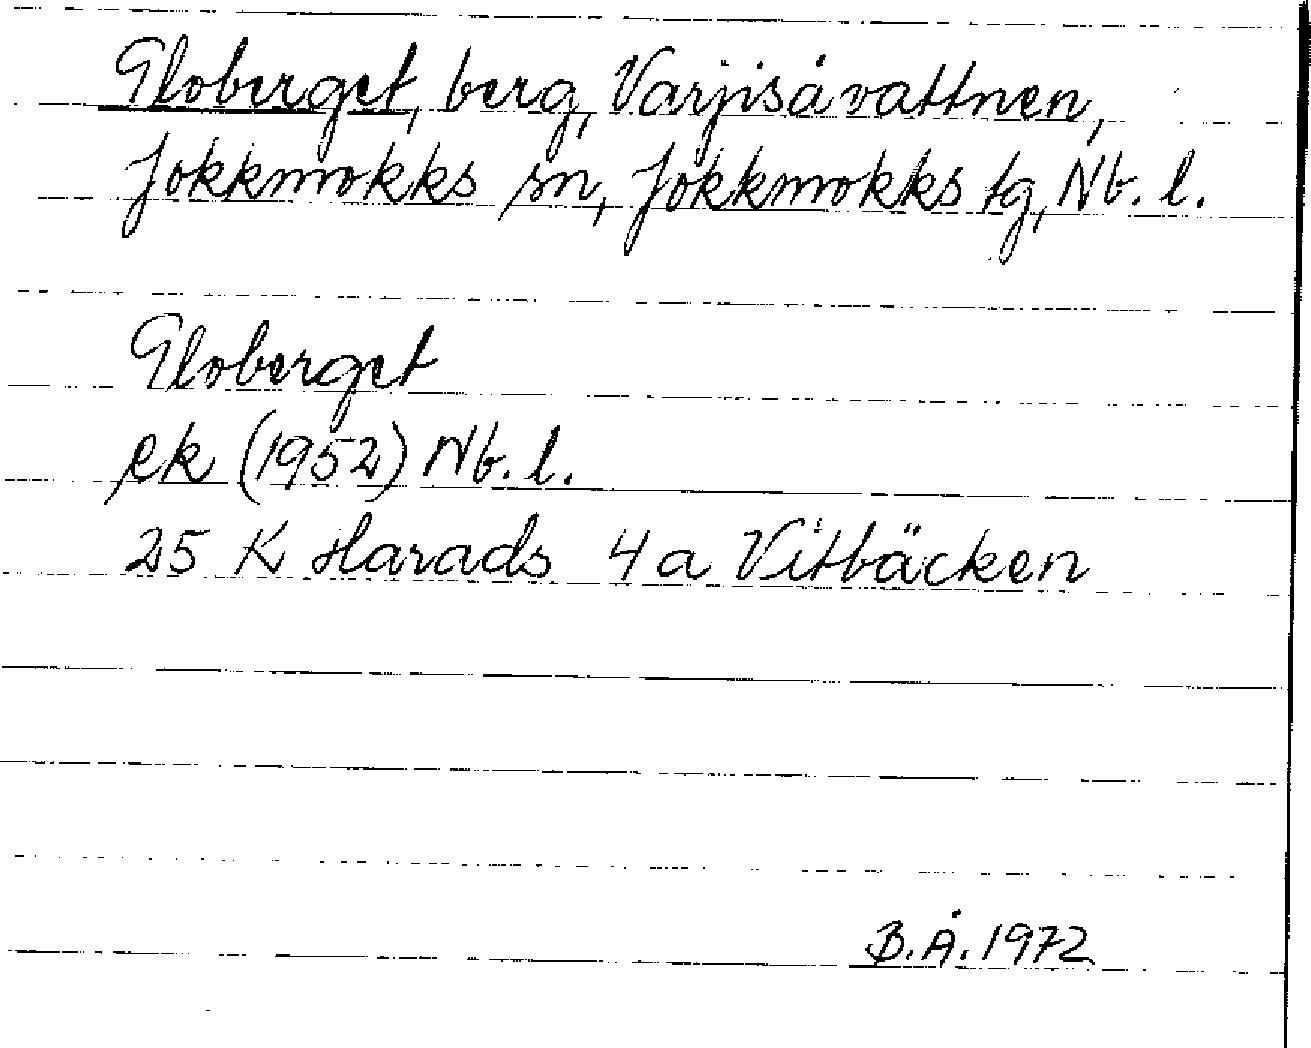 Globerget, berg, Varjisåvattnen,
Jokkmokks sn, Jokkmokks tg, Nb. l.
Globerget
ek (1952) Nb. l.
25 K Harads 4a Vitbäcken
B.Å. 1972